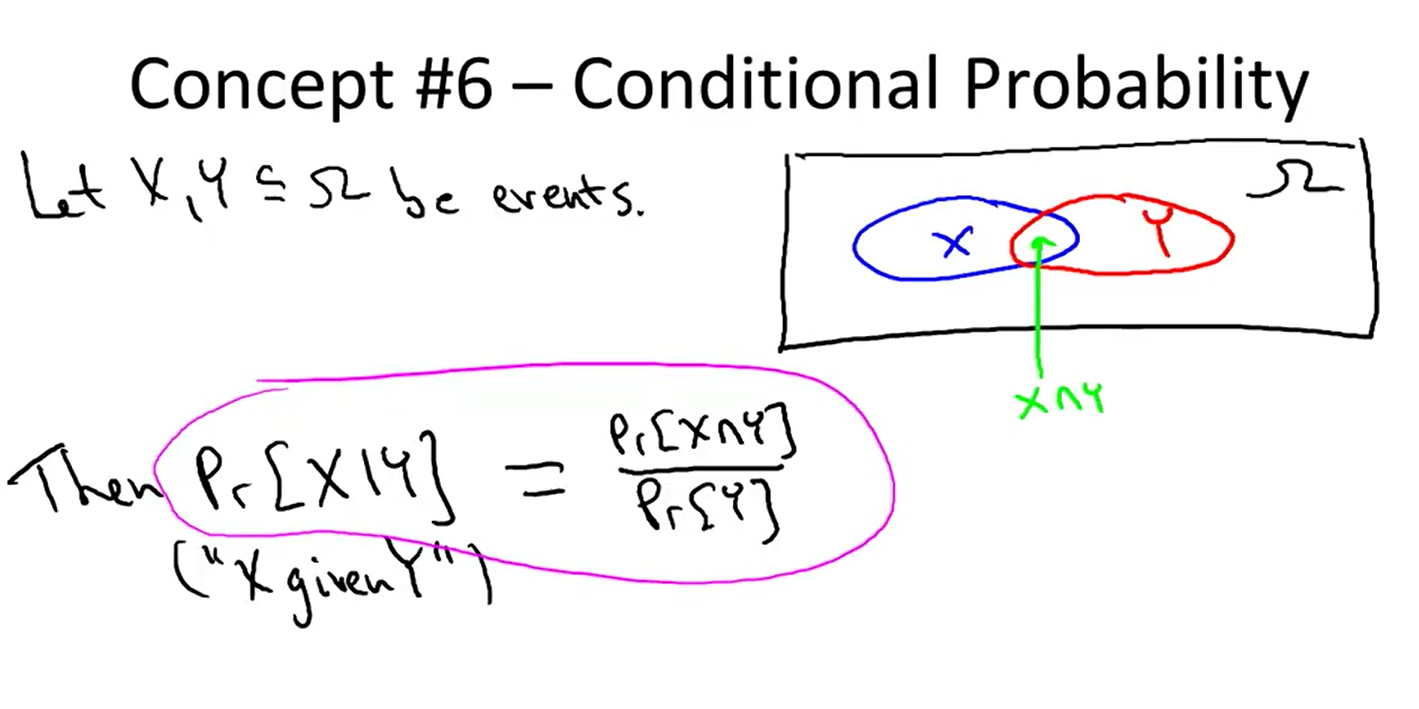 Concept #6 – Conditional Probability
Let X, Y ⊆ Ω be events.
Ω
X
Y
X∩Y
Then Pr[X|Y] = Pr[X∩Y] / Pr[Y]
("X given Y")